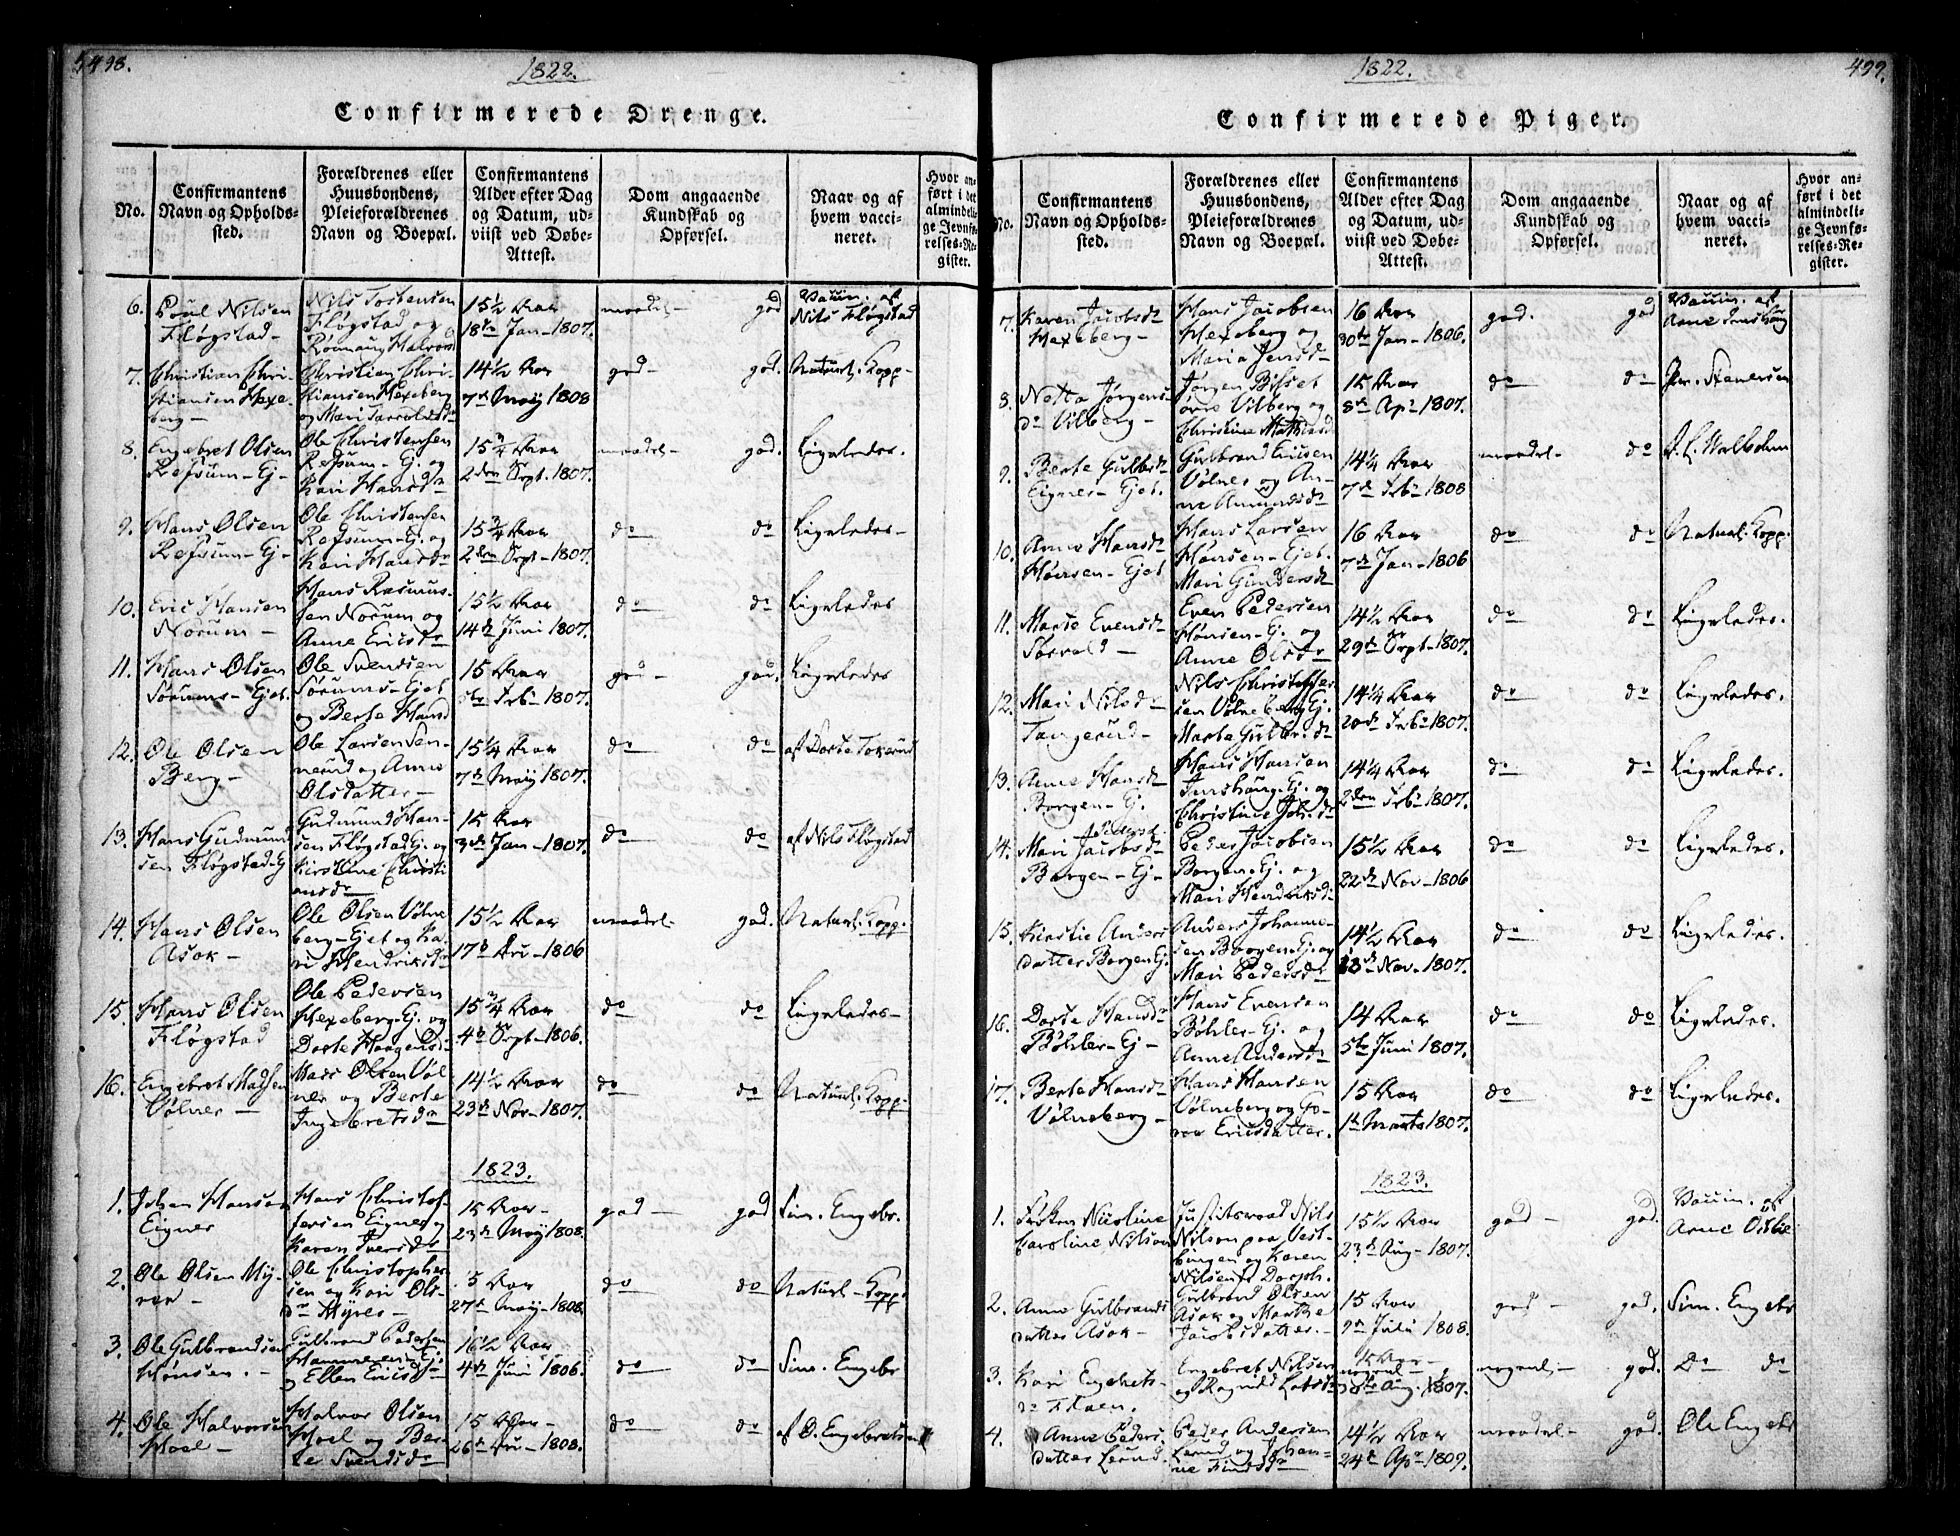 498.
1822.
Confirmerede Drenge.
No.
Confirmantens
Navn og Opholds-
sted.
Forældrenes eller
Huusbondens,
Pleieforældrenes
Navn og Boepæl.
Confirmantens
Alder efter Dag
og Datum, ud-
viist ved Døbe-
Attest.
Dom angaaende
Kundskab og
Opførsel.
Naar og af
hvem vacci-
neret.
Hvor an-
ført i det
almindeli-
ge Jevnfø-
relses-Re-
gister.
6. Poul Nilsen
Fløgstad-
Nils Tostensen
Fløgstad og
15½ Aar
18de Jan- 1807.
maadel- god
Vaccin. af
Nils Fløgstad
7. Christian Chri-
stiansen Hexe-
berg-
Christian Chri-
stiansen Hexeberg
14½ Aar
7de Maij 1808
god- god. Naturl. Kopp-
8. Engebret Olsen
Refsum-Ej-
Ole Christensen
Refsum-Ej. og
Kari Hansdr
15¾ Aar
2den Sept. 1807.
maadel- god. Ligeledes.
9. Hans Olsen
Refsum-Ej-
Ole Christensen
Refsum-Ej. og
Kari Hansdr
15¾ Aar
2den Sept- 1807.
do do Ligeledes-
10. Eric Hansen
Norum-
Hans Rasmus-
sen Norum og
Anne Ericsdr
15½ Aar
14de Juni 1807.
do do Ligeledes
11. Hans Olsen
Sørums-Ejet.
Ole Svendsen
Sørums-Ejet
og Berte Hansd
15 Aar
5te Feb- 1807.
god- god. Ligeledes
12. Ole Olsen
Berg-
Ole Larsen Sen-
nerud og Anne
Olsdatter-
15¼ Aar
7de Maij 1807.
do do af Dorte Tokerud
13. Hans Gudmund
sen Fløgstad-Ej
Gudmund Han-
sen Fløgstad Ej. og
Kirstine Christi
ansdr
15 Aar
3de Jan- 1807.
do do af Nils Fløgstad
14. Hans Olsen
Asak-
Ole Olsen Vølne
berg-Ejet og Ka-
ri Hendriksdr
15½ Aar
17de 1806
maadel- god. Naturl. Kopp.
15. Hans Olsen
Fløgstad
Ole Pedersen
Hexeberg-Ej. og
Dorte Haagensd
15¾ Aar
4de Sept- 1806.
do do Ligeledes-
16. Engebret Madsen
Vølner-
Mads Olsen Vøl
ner og Berte
Ingebretsdr
14½ Aar
23de Nov- 1807.
do do Naturl. Kopp-
1823.
1. Johan Hansen
Eigner
Hans Christof-
fersen Eigner og
Karen Iversdr
15 Aar-
23de Maij 1808.
god- god Sim. Engebr.
2. Ole Olsen My-
rer-
Ole Christopher
sen og Kari Ols-
dr Myrer-
15 Aar
27de Maij- 1808.
do do Naturl- Kopp.
3. Ole Gulbrandsen
Hønsen.-
Gulbrand Pedersen
og Ellen Ericsdr
16½ Aar
4de Juni 1806.
do do Sim. Engebr
4. Ole Halvorsen
Hoel-
Halvor Olsen
Hoel og Ber-
te Svendsdr
15 Aar-
26de 1808.
do do af O. Engebretsen
499.
1822.
Confirmerede Piger.
No.
Confirmantens
Navn og Opholds-
sted.
Forældrenes eller
Huusbondens,
Pleieforældrenes
Navn og Boepæl.
Confirmantens
Alder efter Dag
og Datum, ud-
viist ved Døbe-
Attest.
Dom angaaende
Kundskab og
Opførsel.
Naar og af
hvem vacci-
neret.
Hvor an-
ført i det
almindeli-
ge Jevnfø-
relses-Re-
gister.
7. Karen Jacobsdr
Hexeberg-
Hans Jacobsen
Hexeberg og
Maria Jensd-
16 Aar
30te Jan- 1806.
god. god
Vaccin. af
Arne Imshaug
8. Netta Jørgens-
dr Vilberg-
Jørgen Bisset
øvre Vilberg og
Christine Mathisd
15 Aar
8de Apr 1807.
do do Stenersen
9. Berte Gulbrdr
Eignes-Ejet.
Gulbrand Ericsen
Vølner og An-
ne Amundsdr
14¼ Aar
7de Feb- 1808
maadel- do
10. Anne Hansdr
Hønsen-Ejet
Hans Larsen
Hønsen-Ejet.
Mari Gundersdr
16 Aar
7de Jan- 1806
do do Naturl. Kopp.
11. Marte Evensdr
Sørvald-
Even Pedersen
Hønsen-Ej. og
Anne Olsdr
14½ Aar
29de Sept- 1807.
do do Ligeledes.
12. Mari Nilsdr
Tangerud-
Nils Christoffer
sen Vølneberg Ej.
Marte Gulbr.dr
14¼ Aar
20de Feb- 1807.
do do Ligeledes.
13. Anne Hansdr
Borgen-Ej.
Hans Hansen
Imshaug-Ej. og
Christine Joh.dr
14¼ Aar
2den Feb- 1807.
do do Ligeledes.
14. Mari Jacobsdr
Borgen-Ej-
Peder Jacobsen
Borgen-Ej. og
Mari Hendriksd
15½ Aar
22de Nov- 1806
do do Ligeledes.
15. Kirstie Anders
datter Borgen Ej.
Anders Johanne-
sen Borgen-Ej. og
Mari Pedersdr
14½ Aar
18de Nov- 1807.
do do Ligeledes.
16. Dorte Hansdr
Bøhler-Ej-
Hans Evensen
Bøhler-Ej. og
Anne Andersdr
14 Aar
5te Juni 1807.
do do Ligeledes.
17. Berte Hansdr
Vølneberg-
Hans Hansen
Vølneberg og Go-
ro Ericsdatter.
15 Aar
1te Marts 1807.
do do Ligeledes.
1823.
1. Frøken Nicoline
Caroline Nilson
Justitsraad Nils
Nilson paa Vest-
bingen og Karen
Nilsen f. Dorph.
15½ Aar
23de Aug- 1807.
god- god.
Vaccin. af
Arne
2. Anne Gulbrands
datter Asak-
Gulbrand Olsen
Asak og Marthe
Jacobsdatter.-
15 Aar
9de Juli 1808.
god- god. Sim. Engebr
3. Kari Engebrets-
dr Flaen.
Engebret Nilsen
og Ragnild Larsdr
15 Aar-
Aug. 1807.
nogenl- god. do do
4. Anne Peders
datter Lerud.
Peder Andersen
Lerud og Johan-
ne Findsdr
14½ Aar
24de Apr 1809.
maadel- god. Ole Engebr